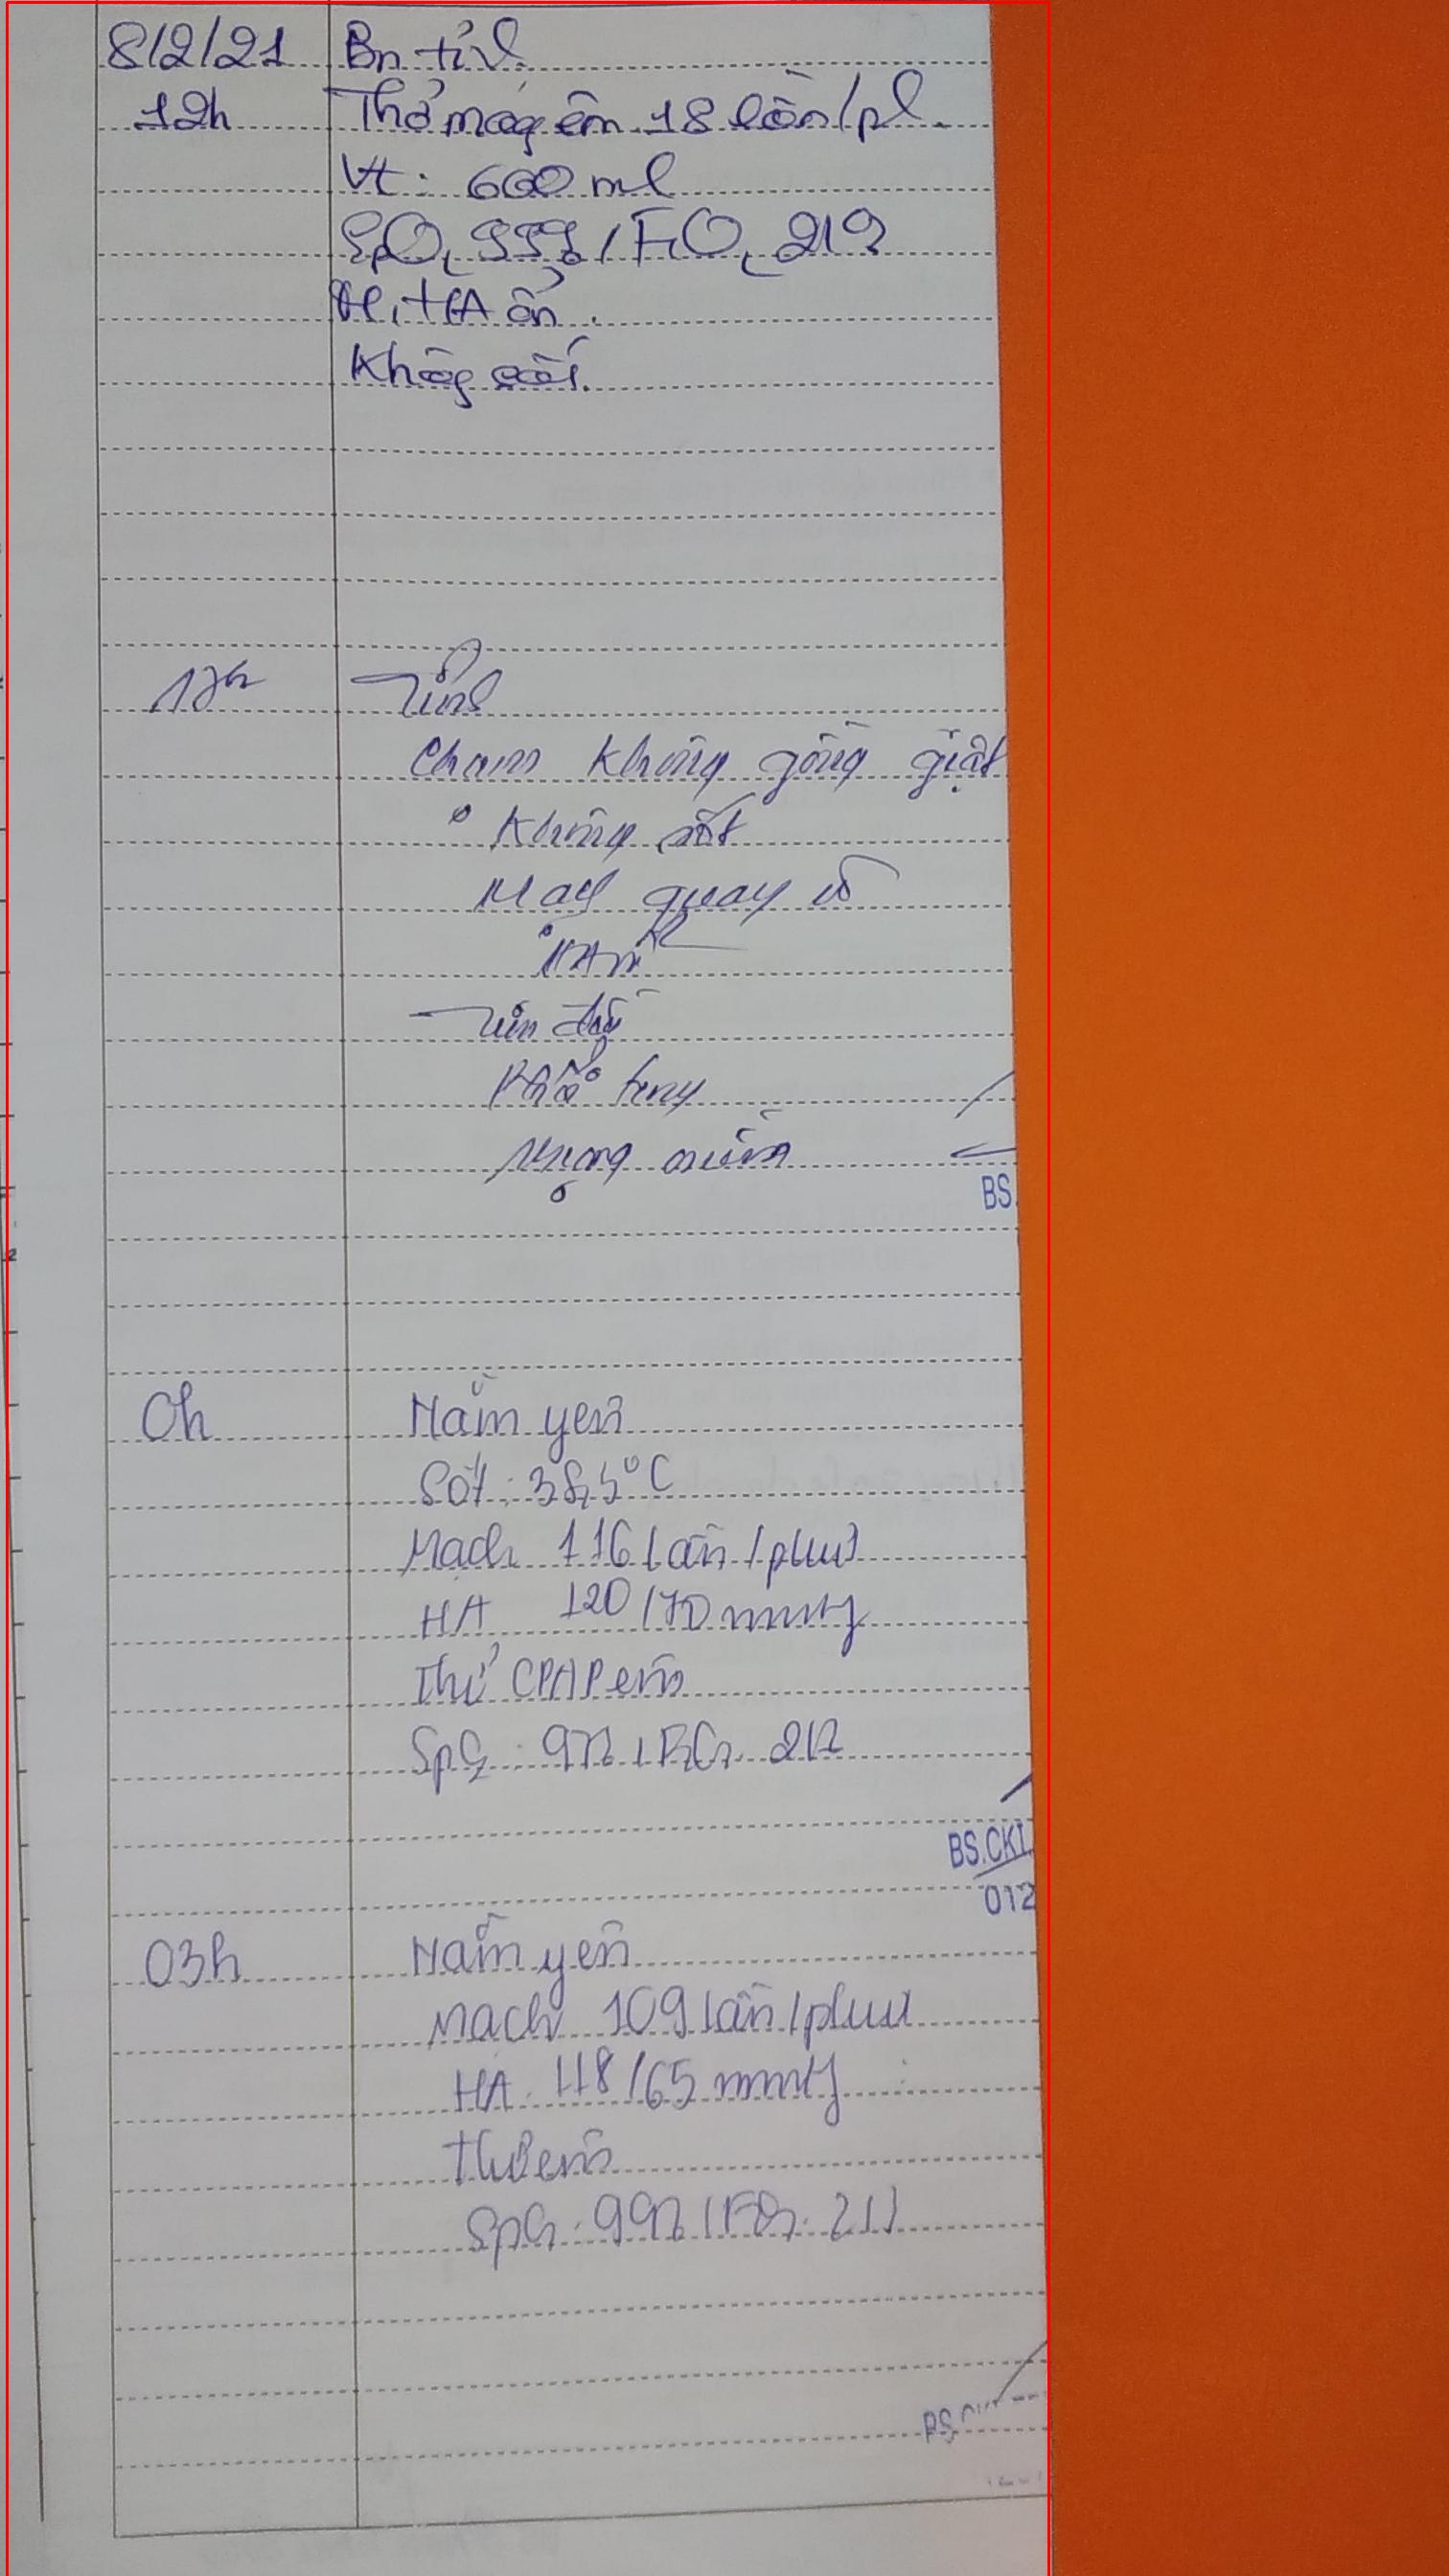 8/2/21 Bn tỉnh.
12h Thở máy êm 18 lần/ph.
Vt: 600 ml
SpO2 99% / FiO2 21%
M, HA ổn.
Không sốt.
17h Tỉnh
Chạm không gồng giật
Không sốt
Mạch quay rõ
HA
Tim đều
Phổi trong
Bụng mềm
BS.
0h Nằm yên
Sốt: 38,5°C
Mạch 116 lần/phút
HA 120/70 mmHg
Thở CPAP êm
SpO2: 97% / FiO2 21%
BS.CKI.
012
03h Nằm yên
Mạch 109 lần/phút
HA. 118/65 mmHg
Thở êm
SpO2: 99% (FiO2: 21)
BS